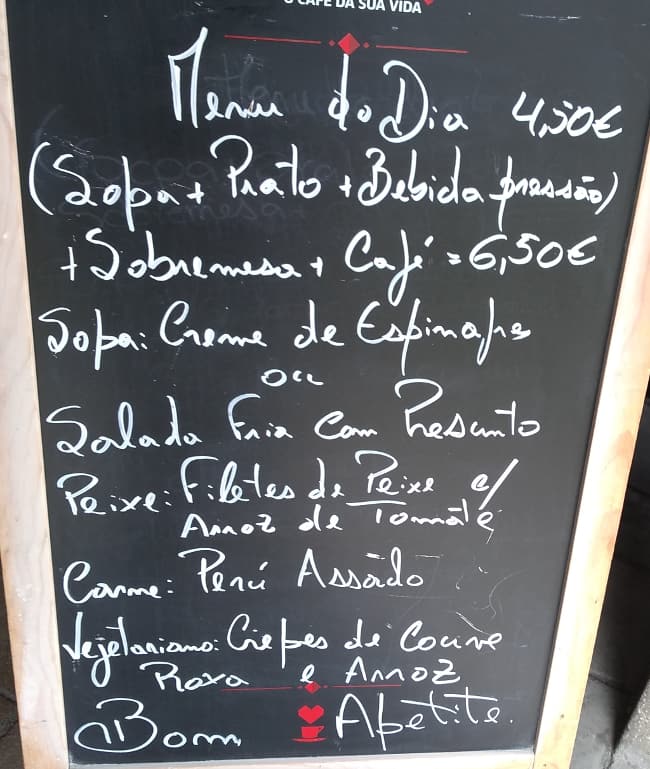 O CAFÉ DA SUA VIDA
Menu do Dia 4,50€
(Sopa + Prato + Bebida pressão)
+ Sobremesa + Café = 6,50€
Sopa: Creme de Espinafre
ou
Salada Fria com Presunto
Peixe: Filetes de Peixe c/
Arroz de Tomate
Carne: Perú Assado
Vegetariano: Crepes de Couve
Roxa e Arroz
Bom Apetite.